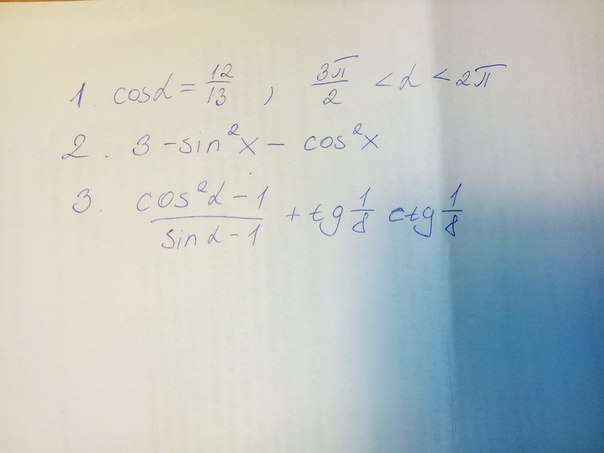 1. cos α = 12/13 , 3π/2 < α < 2π
2. 3 - sin²x - cos²x
3. (cos²α - 1)/(sin α - 1) + tg 1/8 ctg 1/8